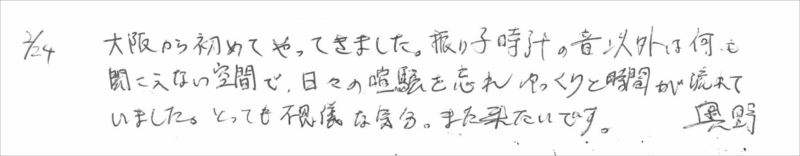 2/24 大阪から初めてやってきました。振り子時計の音以外は何も
聞こえない空間で、日々の喧騒を忘れ ゆっくりと時間が流れて
いました。とっても不思儀な気分。また来たいです。 奥野